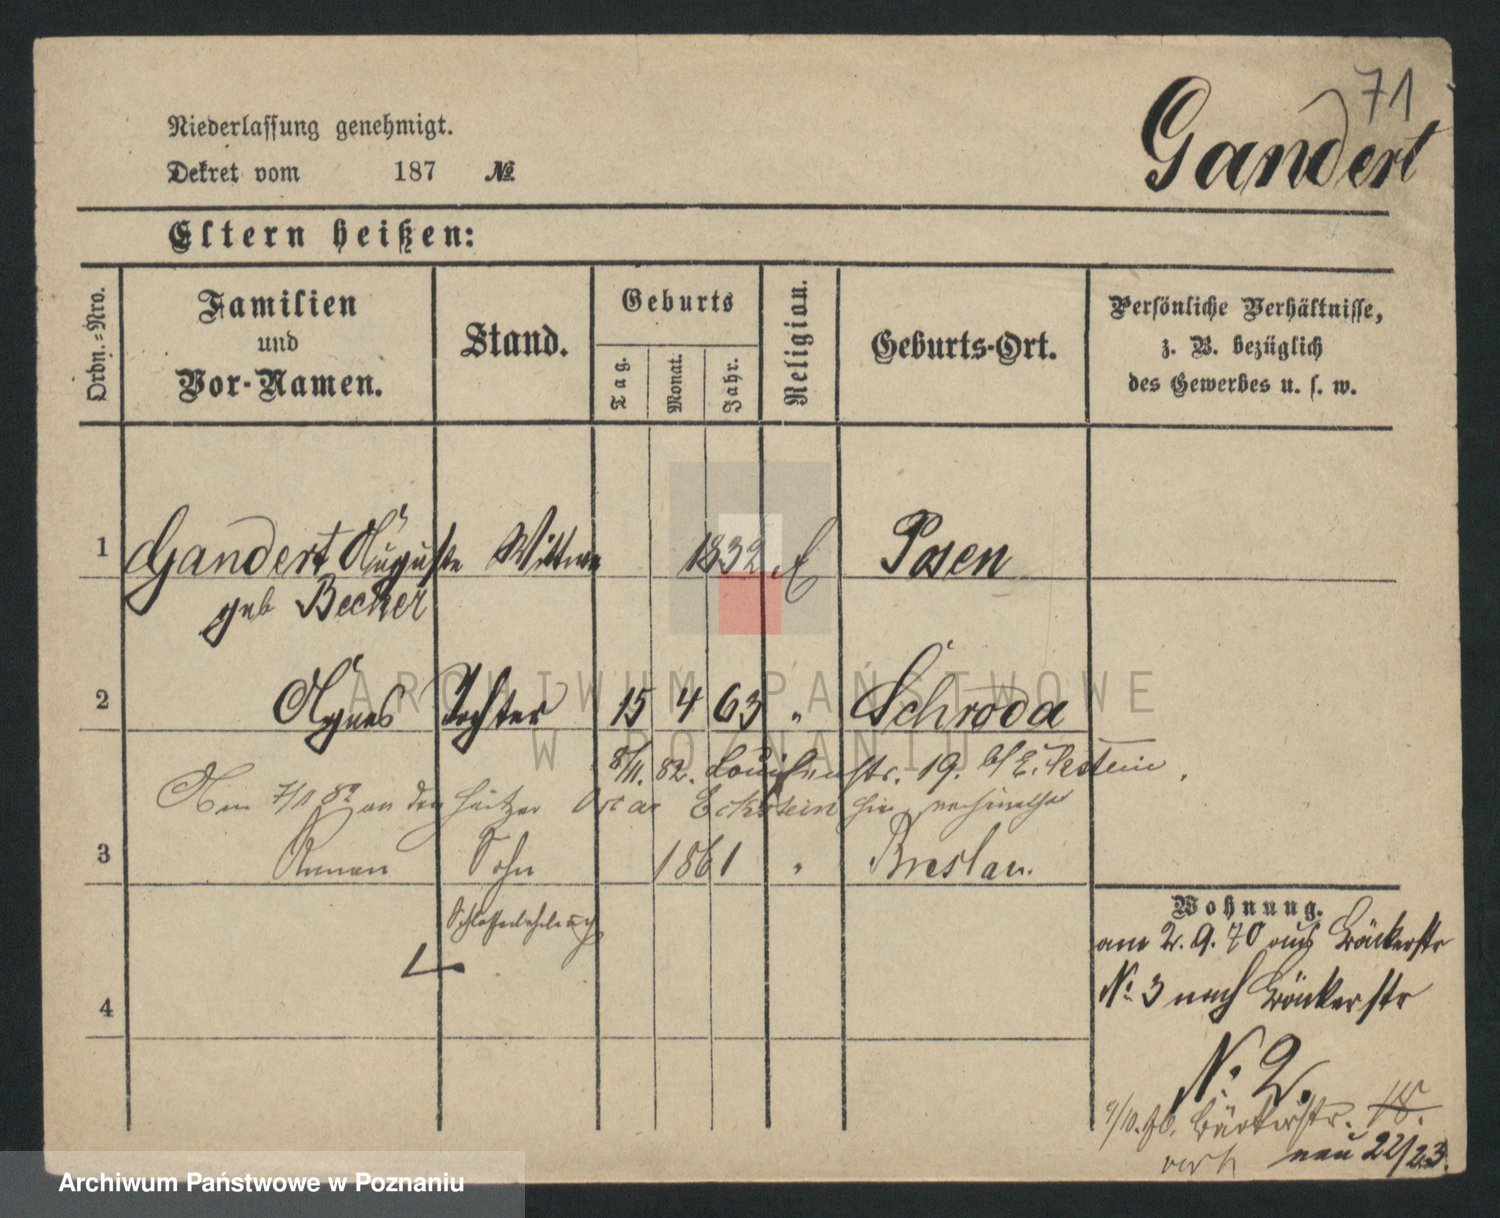 71
Gandert
Niederlassung genehmigt.
Dekret vom 187 №
Eltern heißen:
Ordn.-Nro.
Familien
und
Vor-Namen.
Stand.
Geburts
Tag.
Monat.
Jahr.
Religion.
Geburts-Ort.
Persönliche Verhältnisse,
z. B. bezüglich
des Gewerbes u. s. w.
1 Gandert Auguste Wittwe 1832 E Posen
geb Becker
2 Agnes Tochter 15 4 63 " Schroda
8/11. 82. Louisenstr. 19. b/ Eckstein.
Am 7/11 82 an den Heitzer Oscar Eckstein hier verheirathet
3 Roman Sohn 1861 " Breslau.
4
Wohnung.
am 2. 9. 70 aus Bäckerstr
No 3 nach Bäckerstr
No 2.
9/10. Bäckerstr. 18.
neu 22/23.
ARCHIWUM PAŃSTWOWE
W POZNANIU
Archiwum Państwowe w Poznaniu